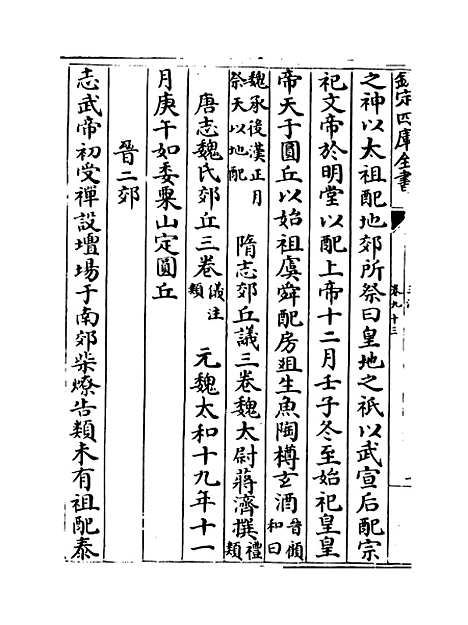 欽定四庫全書
卷九十三
之神以太祖配地郊所祭曰皇地之祇以武宣后配宗
祀文帝於明堂以配上帝十二月壬子冬至始祀皇皇
帝天于圓丘以始祖虞舜配房俎生魚陶樽玄酒晉顧和曰
魏承後漢正月祭天以地配 隋志郊丘議三卷魏太尉蔣濟撰禮類
唐志魏氏郊丘三卷儀注類 元魏太和十九年十一
月庚午如委粟山定圓丘
晉二郊
志武帝初受禪設壇場于南郊柴燎告類未有祖配泰